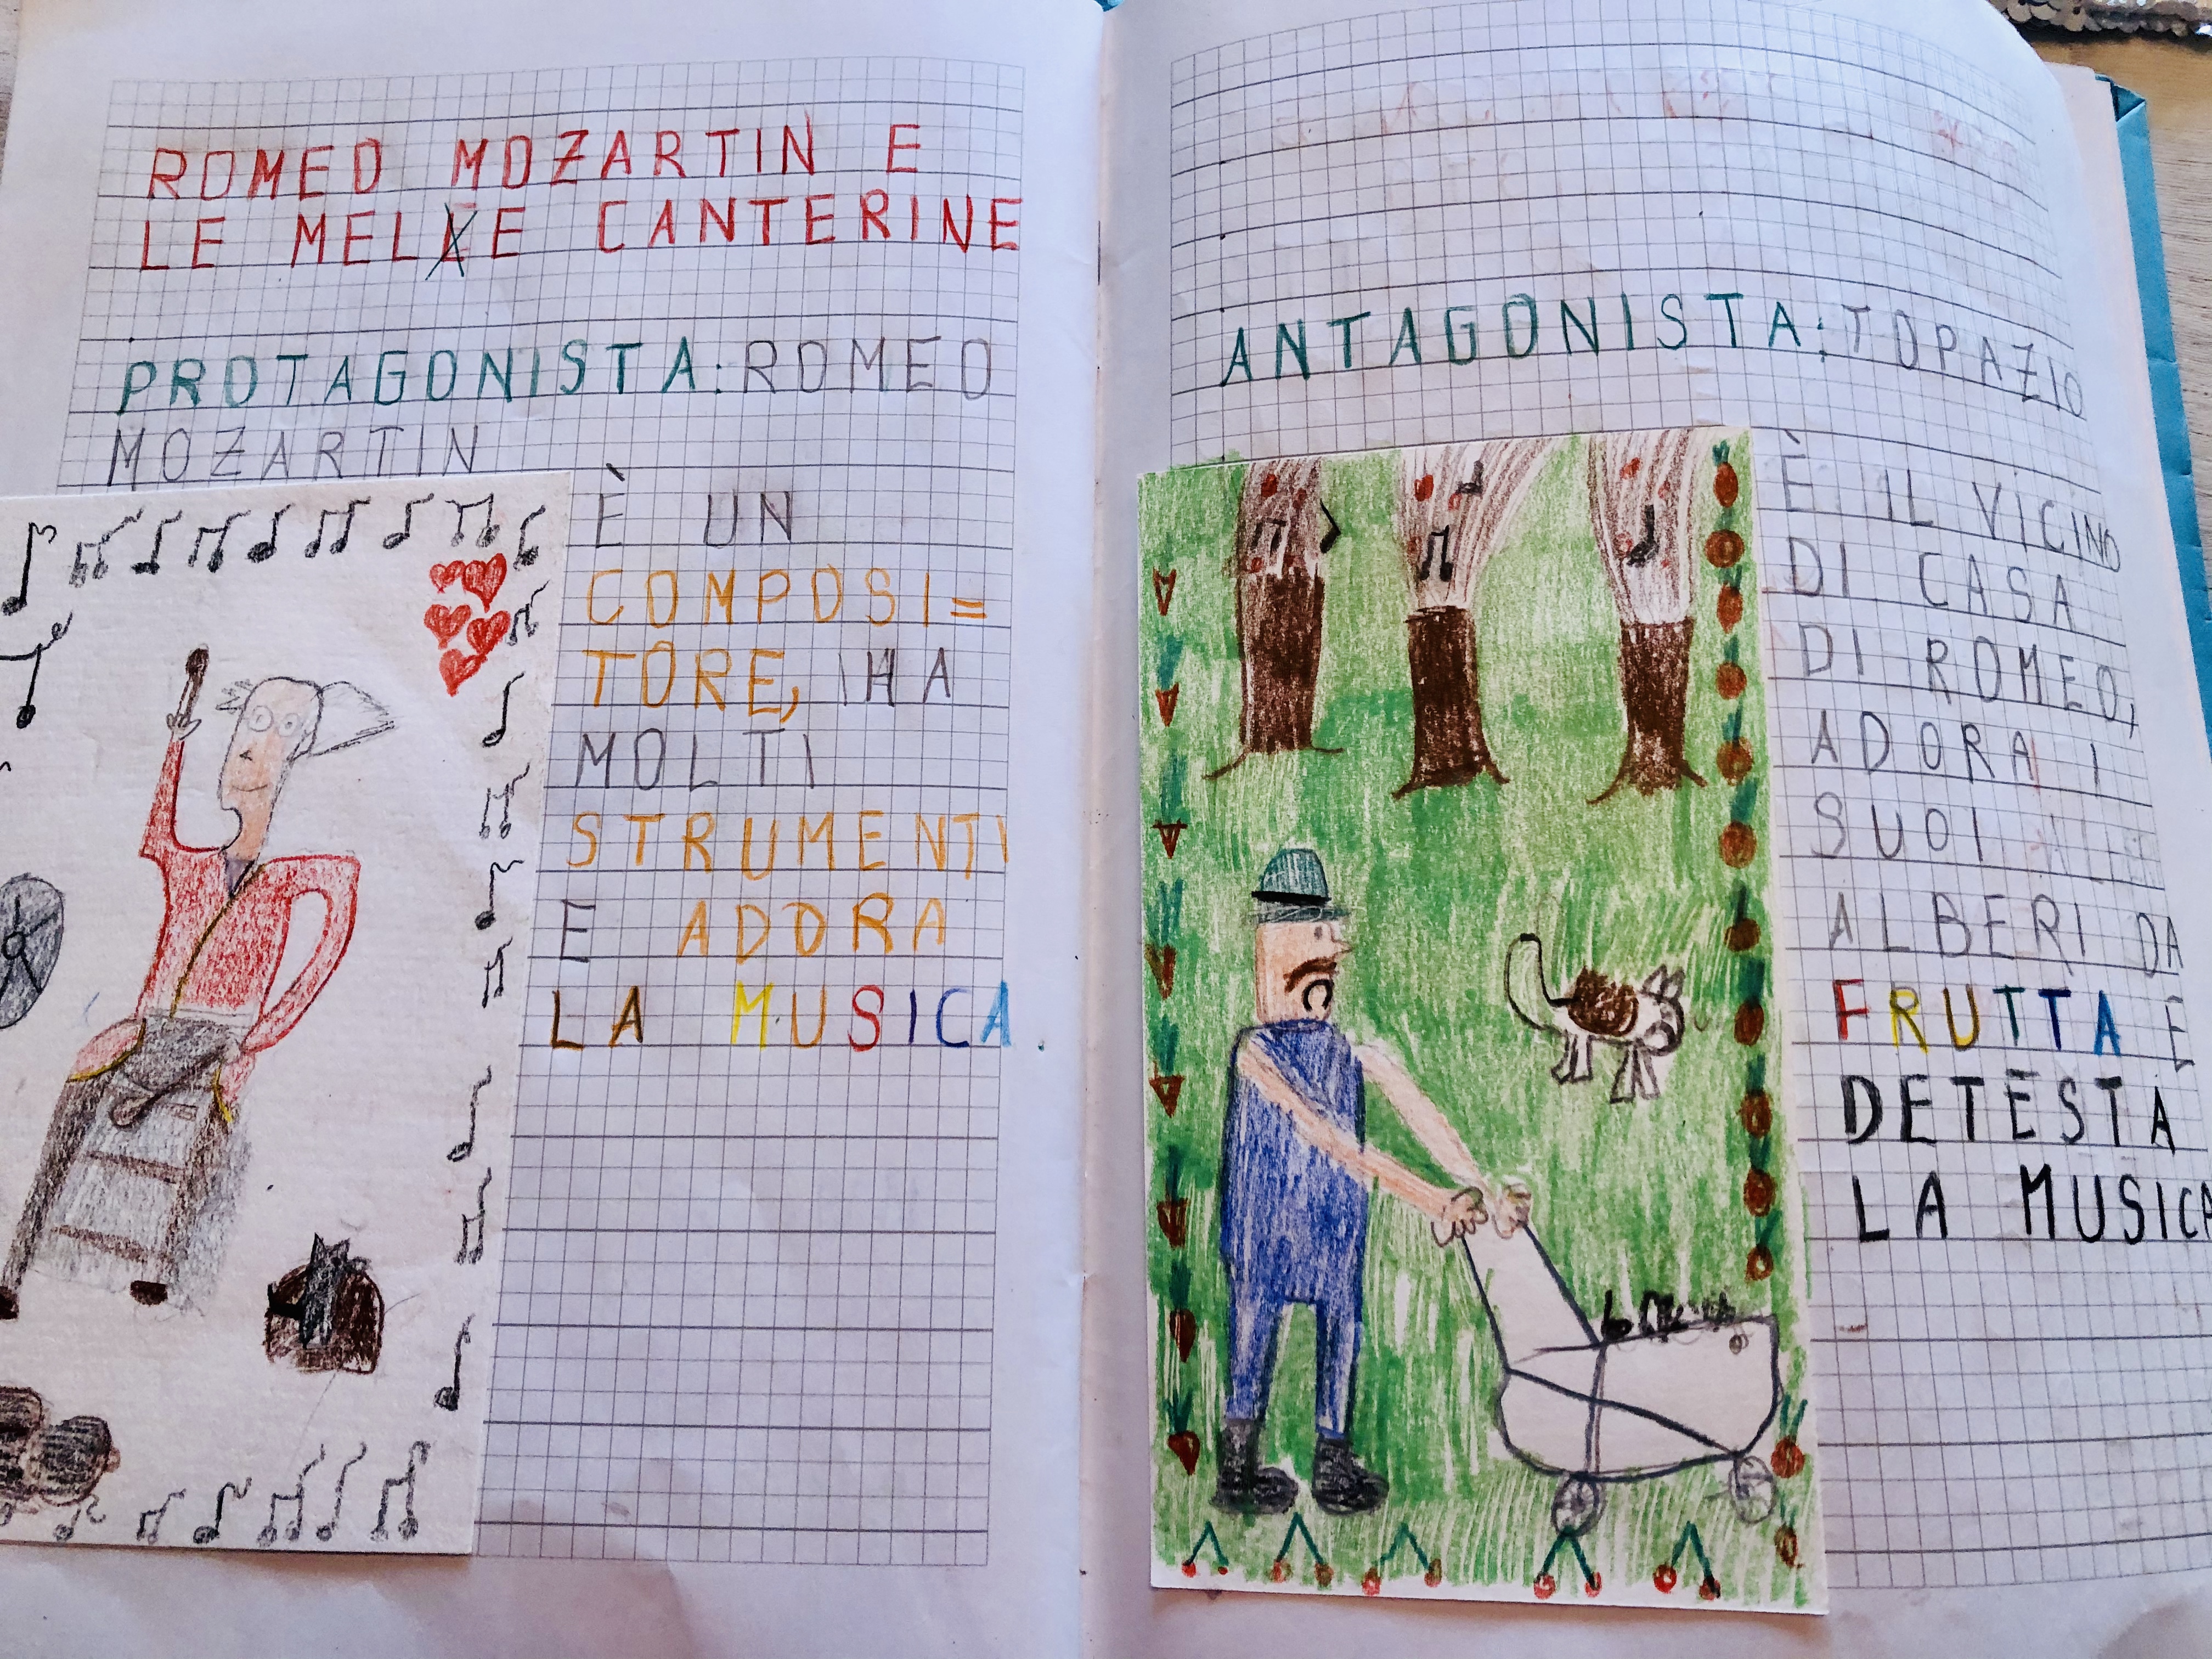 ROMEO MOZARTIN E
LE MELE CANTERINE
PROTAGONISTA: ROMEO
MOZARTIN
È UN
COMPOSI=
TORE, HA
MOLTI
STRUMENTI
E ADORA
LA MUSICA.
ANTAGONISTA: TOPAZIO
È IL VICINO
DI CASA
DI ROMEO,
ADORA I
SUOI
ALBERI DA
FRUTTA E
DETESTA
LA MUSICA